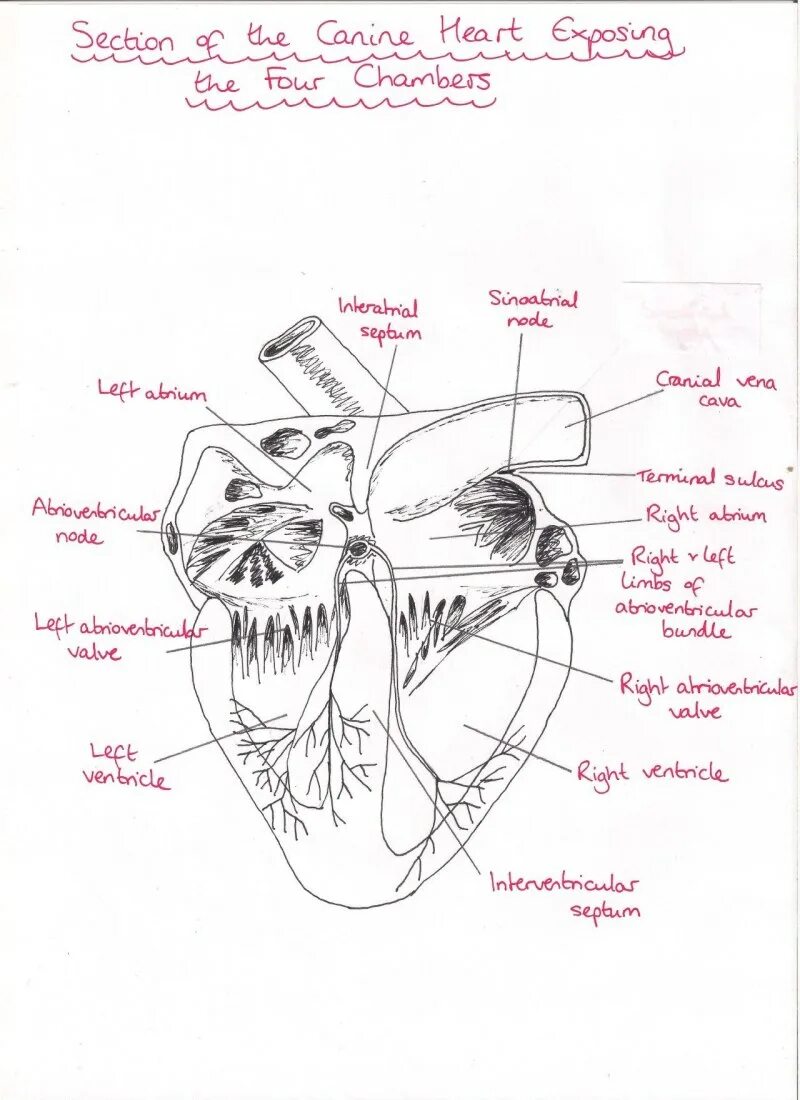 Section of the Canine Heart Exposing
the Four Chambers
Interatrial
septum
Sinoatrial
node
Left atrium
Cranial vena
cava
Terminal sulcus
Atrioventricular
node
Right atrium
Right & left
limbs of
atrioventricular
bundle
Left atrioventricular
valve
Right atrioventricular
valve
Left
ventricle
Right ventricle
Interventricular
septum